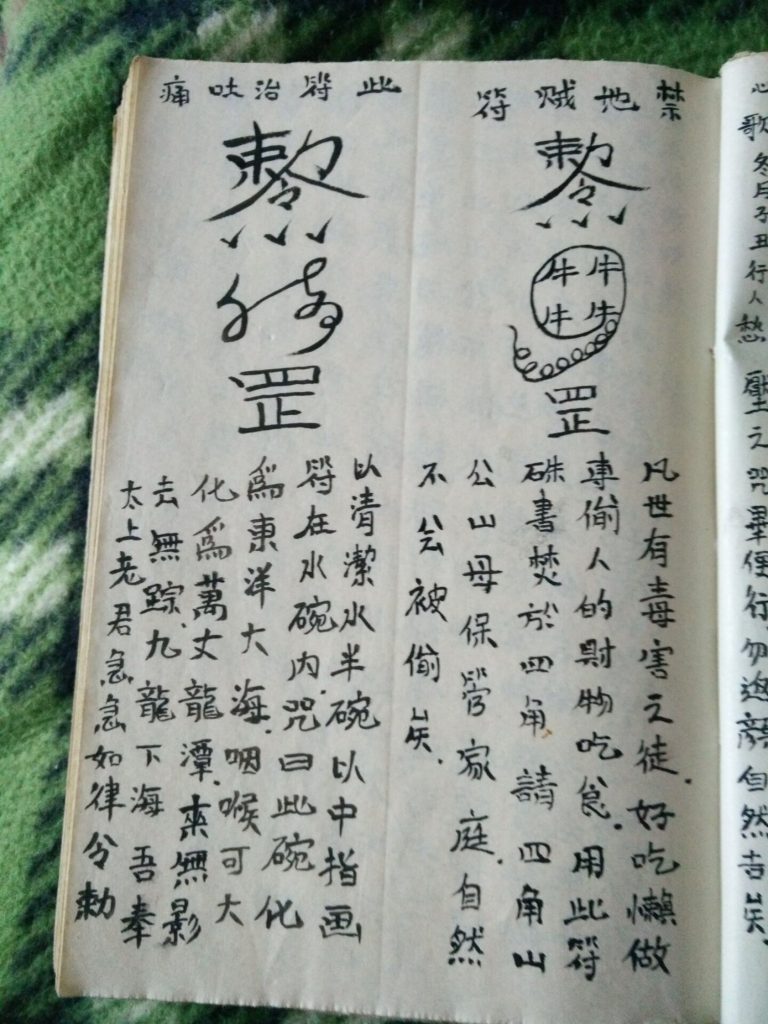 歌冬月子丑行人愁 壓之咒畢便行勿迴顔自然吉矣.
禁地贼符
敕令
牛牛
牛牛
罡
凡世有毒害之徒.好吃懶做
專偷人的財物吃食.用此符
硃書焚於四角 請四角山
公山母保管家庭.自然
不会被偷矣.
此符治吐痛
敕令
罡
以清潔水半碗以中指画
符在水碗内.咒曰此碗化
爲東洋大海.咽喉可大
化爲萬丈龍潭.來無影
去無踪.九龍下海 吾奉
太上老君急急如律令勅